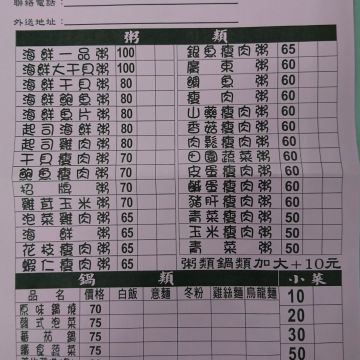 聯絡電話：
外送地址：
粥 類
海鮮一品粥 100 銀魚瘦肉粥 65
海鮮大干貝粥 100 廣東粥 60
海鮮干貝粥 80 鯛魚粥 60
海鮮鮑魚粥 80 瘦肉粥 60
海鮮魚片粥 80 山藥瘦肉粥 60
起司海鮮粥 80 香菇瘦肉粥 60
起司雞肉粥 80 肉鬆瘦肉粥 60
干貝瘦肉粥 70 田園蔬菜粥 60
鮑魚瘦肉粥 70 皮蛋瘦肉粥 60
招牌粥 70 鹹蛋瘦肉粥 60
雞茸玉米粥 70 豬肝瘦肉粥 60
泡菜雞肉粥 65 青菜瘦肉粥 50
海鮮粥 65 玉米瘦肉粥 50
花枝瘦肉粥 65 青菜粥 50
蝦仁瘦肉粥 65 粥類鍋類加大+10元
鍋 類 小菜
品名 價格 白飯 意麵 冬粉 雞絲麵 烏龍麵 10
原味鍋燒 75 20
韓式泡菜 75
蕃茄鍋 75 30
鐵食蔬菜 75 50